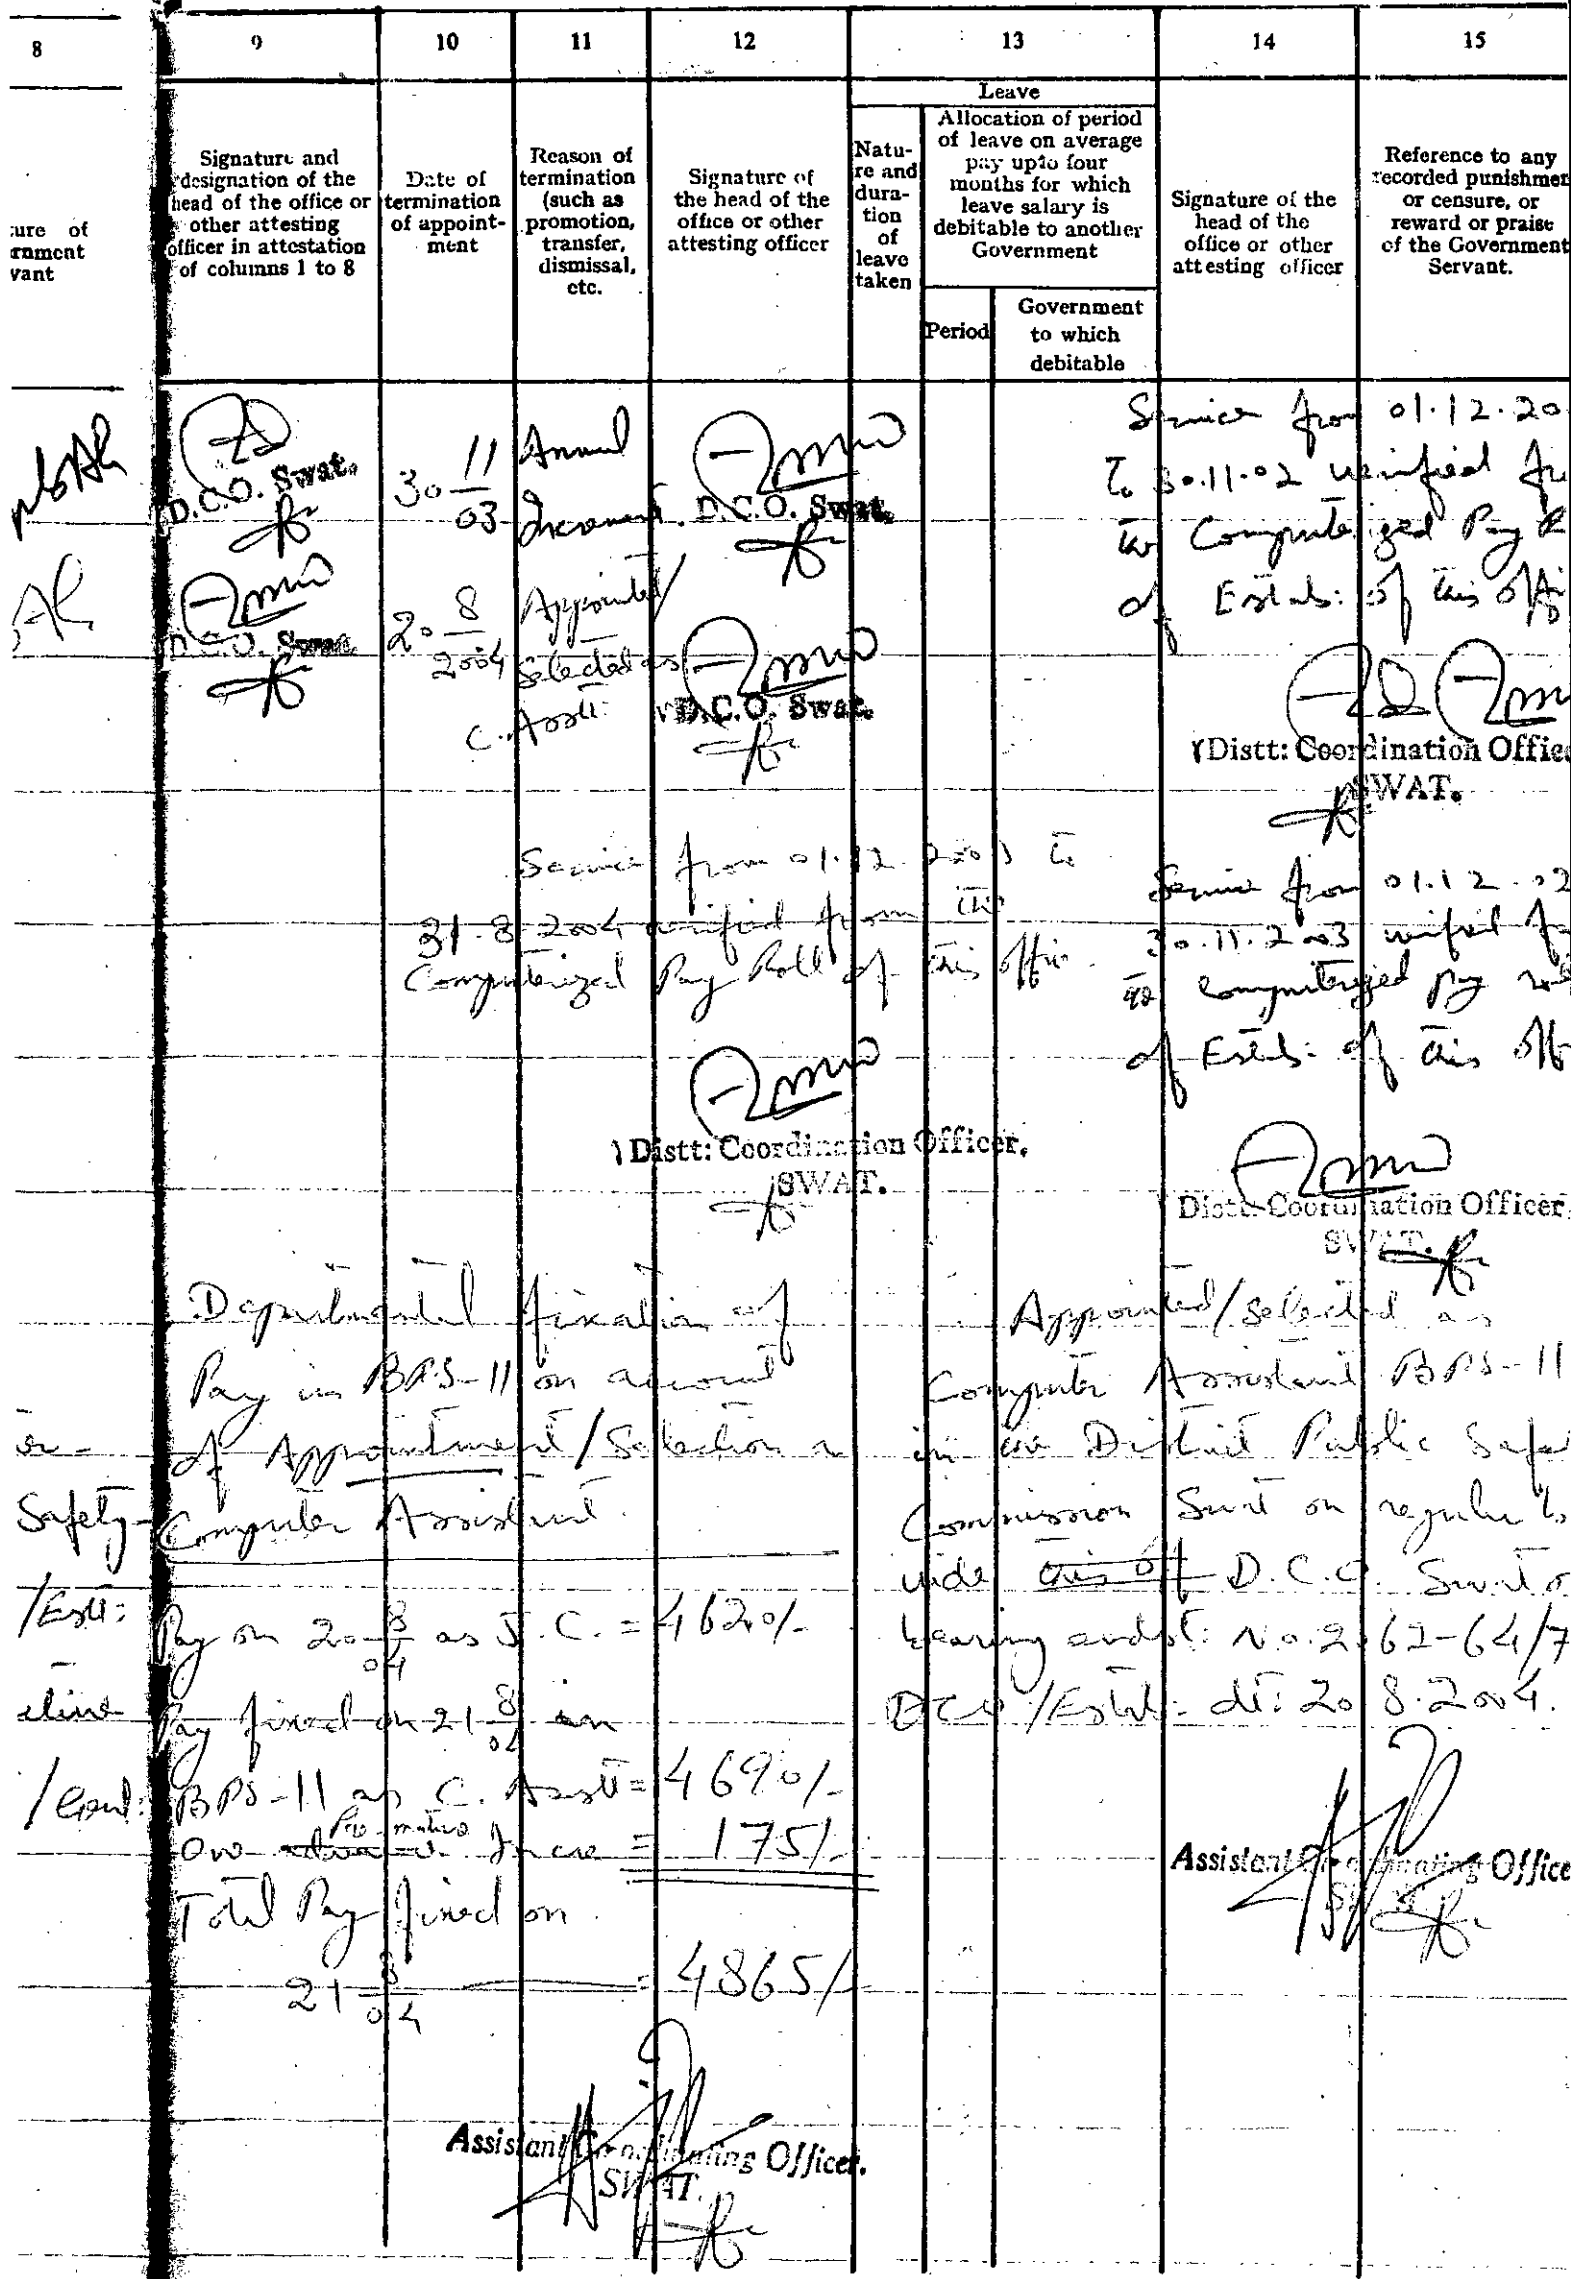 8
9
10
11
12
13
14
15
ure of
rnment
vant
Signature and
designation of the
head of the office or
other attesting
officer in attestation
of columns 1 to 8
Date of
termination
of appoint-
ment
Reason of
termination
(such as
promotion,
transfer,
dismissal,
etc.
Signature of
the head of the
office or other
attesting officer
Leave
Natu-
re and
dura-
tion
of
leave
taken
Allocation of period
of leave on average
pay upto four
months for which
leave salary is
debitable to another
Government
Period
Government
to which
debitable
Signature of the
head of the
office or other
attesting officer
Reference to any
recorded punishmen
or censure, or
reward or praise
of the Government
Servant.
D.C.O. Swat.
30 11/03
Annual
Increment.
D.C.O. Swat.
Service from 01.12.20
To 30.11.02 verified fr
the Computerized Pay R
of Estab: of this offi
D.C.O. Swat.
20 8/2004
Appointed/
Selected as
C. Asstt:
D.C.O. Swat.
Distt: Coordination Office
SWAT.
Service from 01.12.2003 to
31.8.2004 verified from the
Computerized Pay Roll of this office.
Distt: Coordination Officer,
SWAT.
Service from 01.12.02
30.11.2003 verified fr
the computerized pay rol
of Estab: of this off
Distt: Coordination Officer,
SWAT.
Departmental fixation of
Pay in BPS-11 on account
of Appointment/Selection as
Computer Assistant.
Pay on 20 8/04 as J.C. = 4620/-
Pay fixed on 21 8/04 in
BPS-11 as C. Asstt = 4690/-
One Pre-mature Incre = 175/-
Total Pay fixed on
21 8/04 = 4865/-
Assistant Co-ordinating Officer.
SWAT.
Safety
/Estt:
Appointed/selected as
Computer Assistant BPS-11
in the District Public Safe
Commission Swat on regular b
vide this off D.C.O. Swat o
bearing endst: No. 2162-64/7
DCO/Estab: dt: 20.8.2004.
Assistant Co-ordinating Office